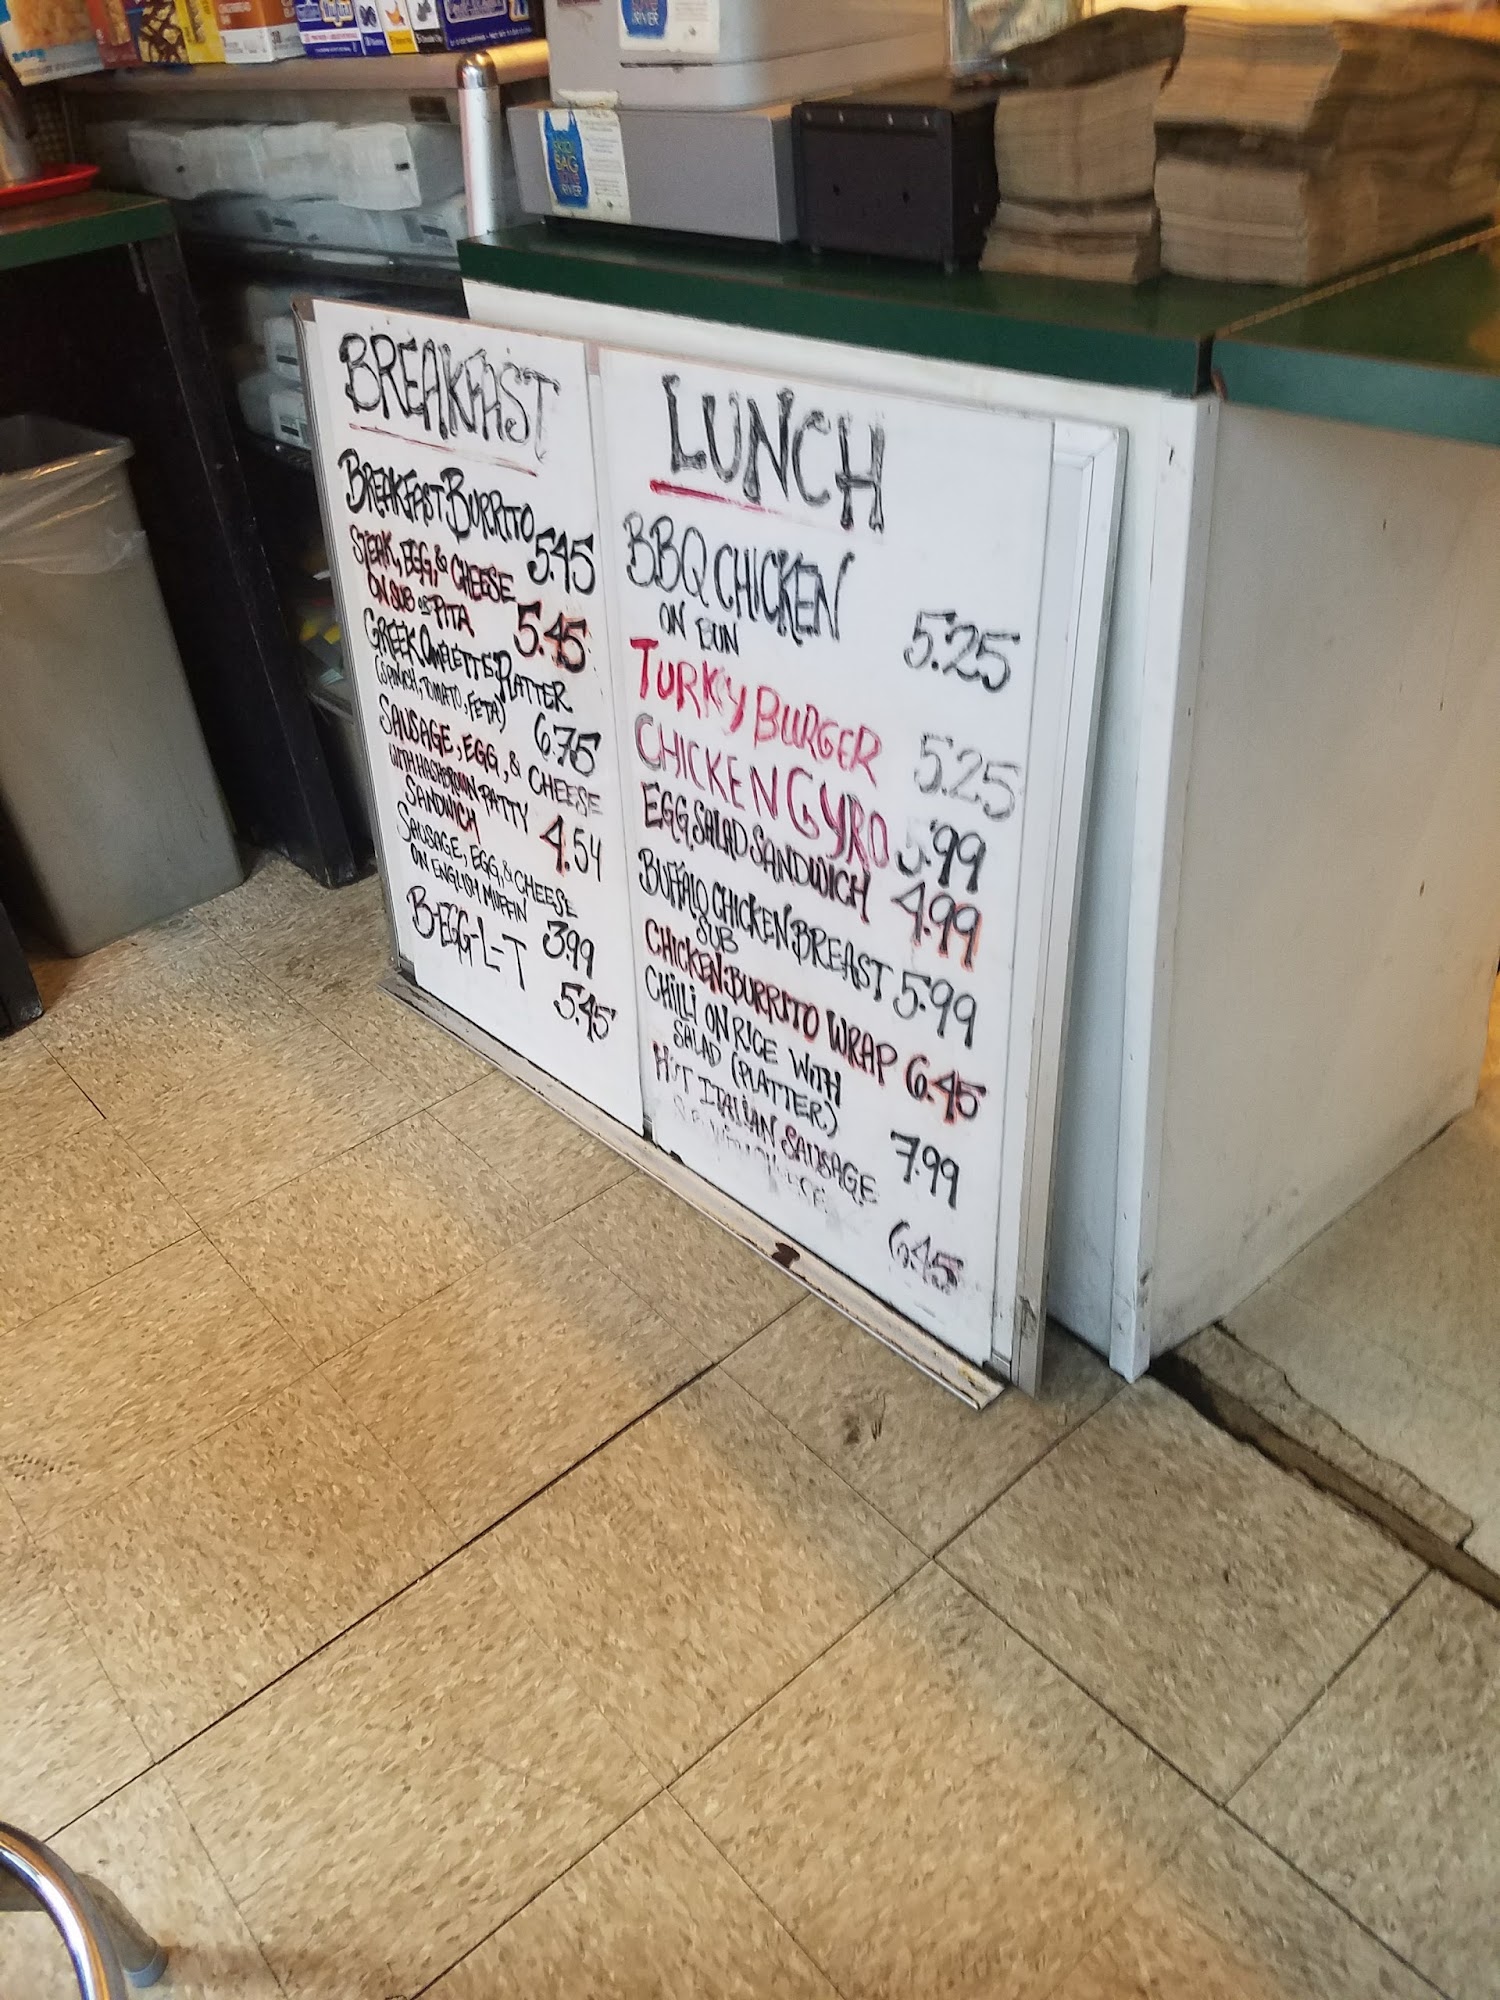 SKIP
BAG
RIVER
BREAKFAST
BREAKFAST BURRITO 5.45
STEAK, EGG, & CHEESE
ON SUB OR PITA 5.45
GREEK OMELETTE PLATTER
(SPINICH, TOMATO, FETA) 6.75
SAUSAGE, EGG, & CHEESE
WITH HASHBROWN PATTY
SANDWICH 4.54
SAUSAGE, EGG, & CHEESE
ON ENGLISH MUFFIN 3.99
B-EGG-L-T
5.45
LUNCH
BBQ CHICKEN
ON BUN 5.25
TURKEY BURGER 5.25
CHICKEN GYRO 5.99
EGG SALAD SANDWICH 4.99
BUFFALO CHICKEN BREAST
SUB 5.99
CHICKEN BURRITO WRAP 6.45
CHILLI ON RICE WITH
SALAD (PLATTER) 7.99
HOT ITALIAN SAUSAGE
6.45